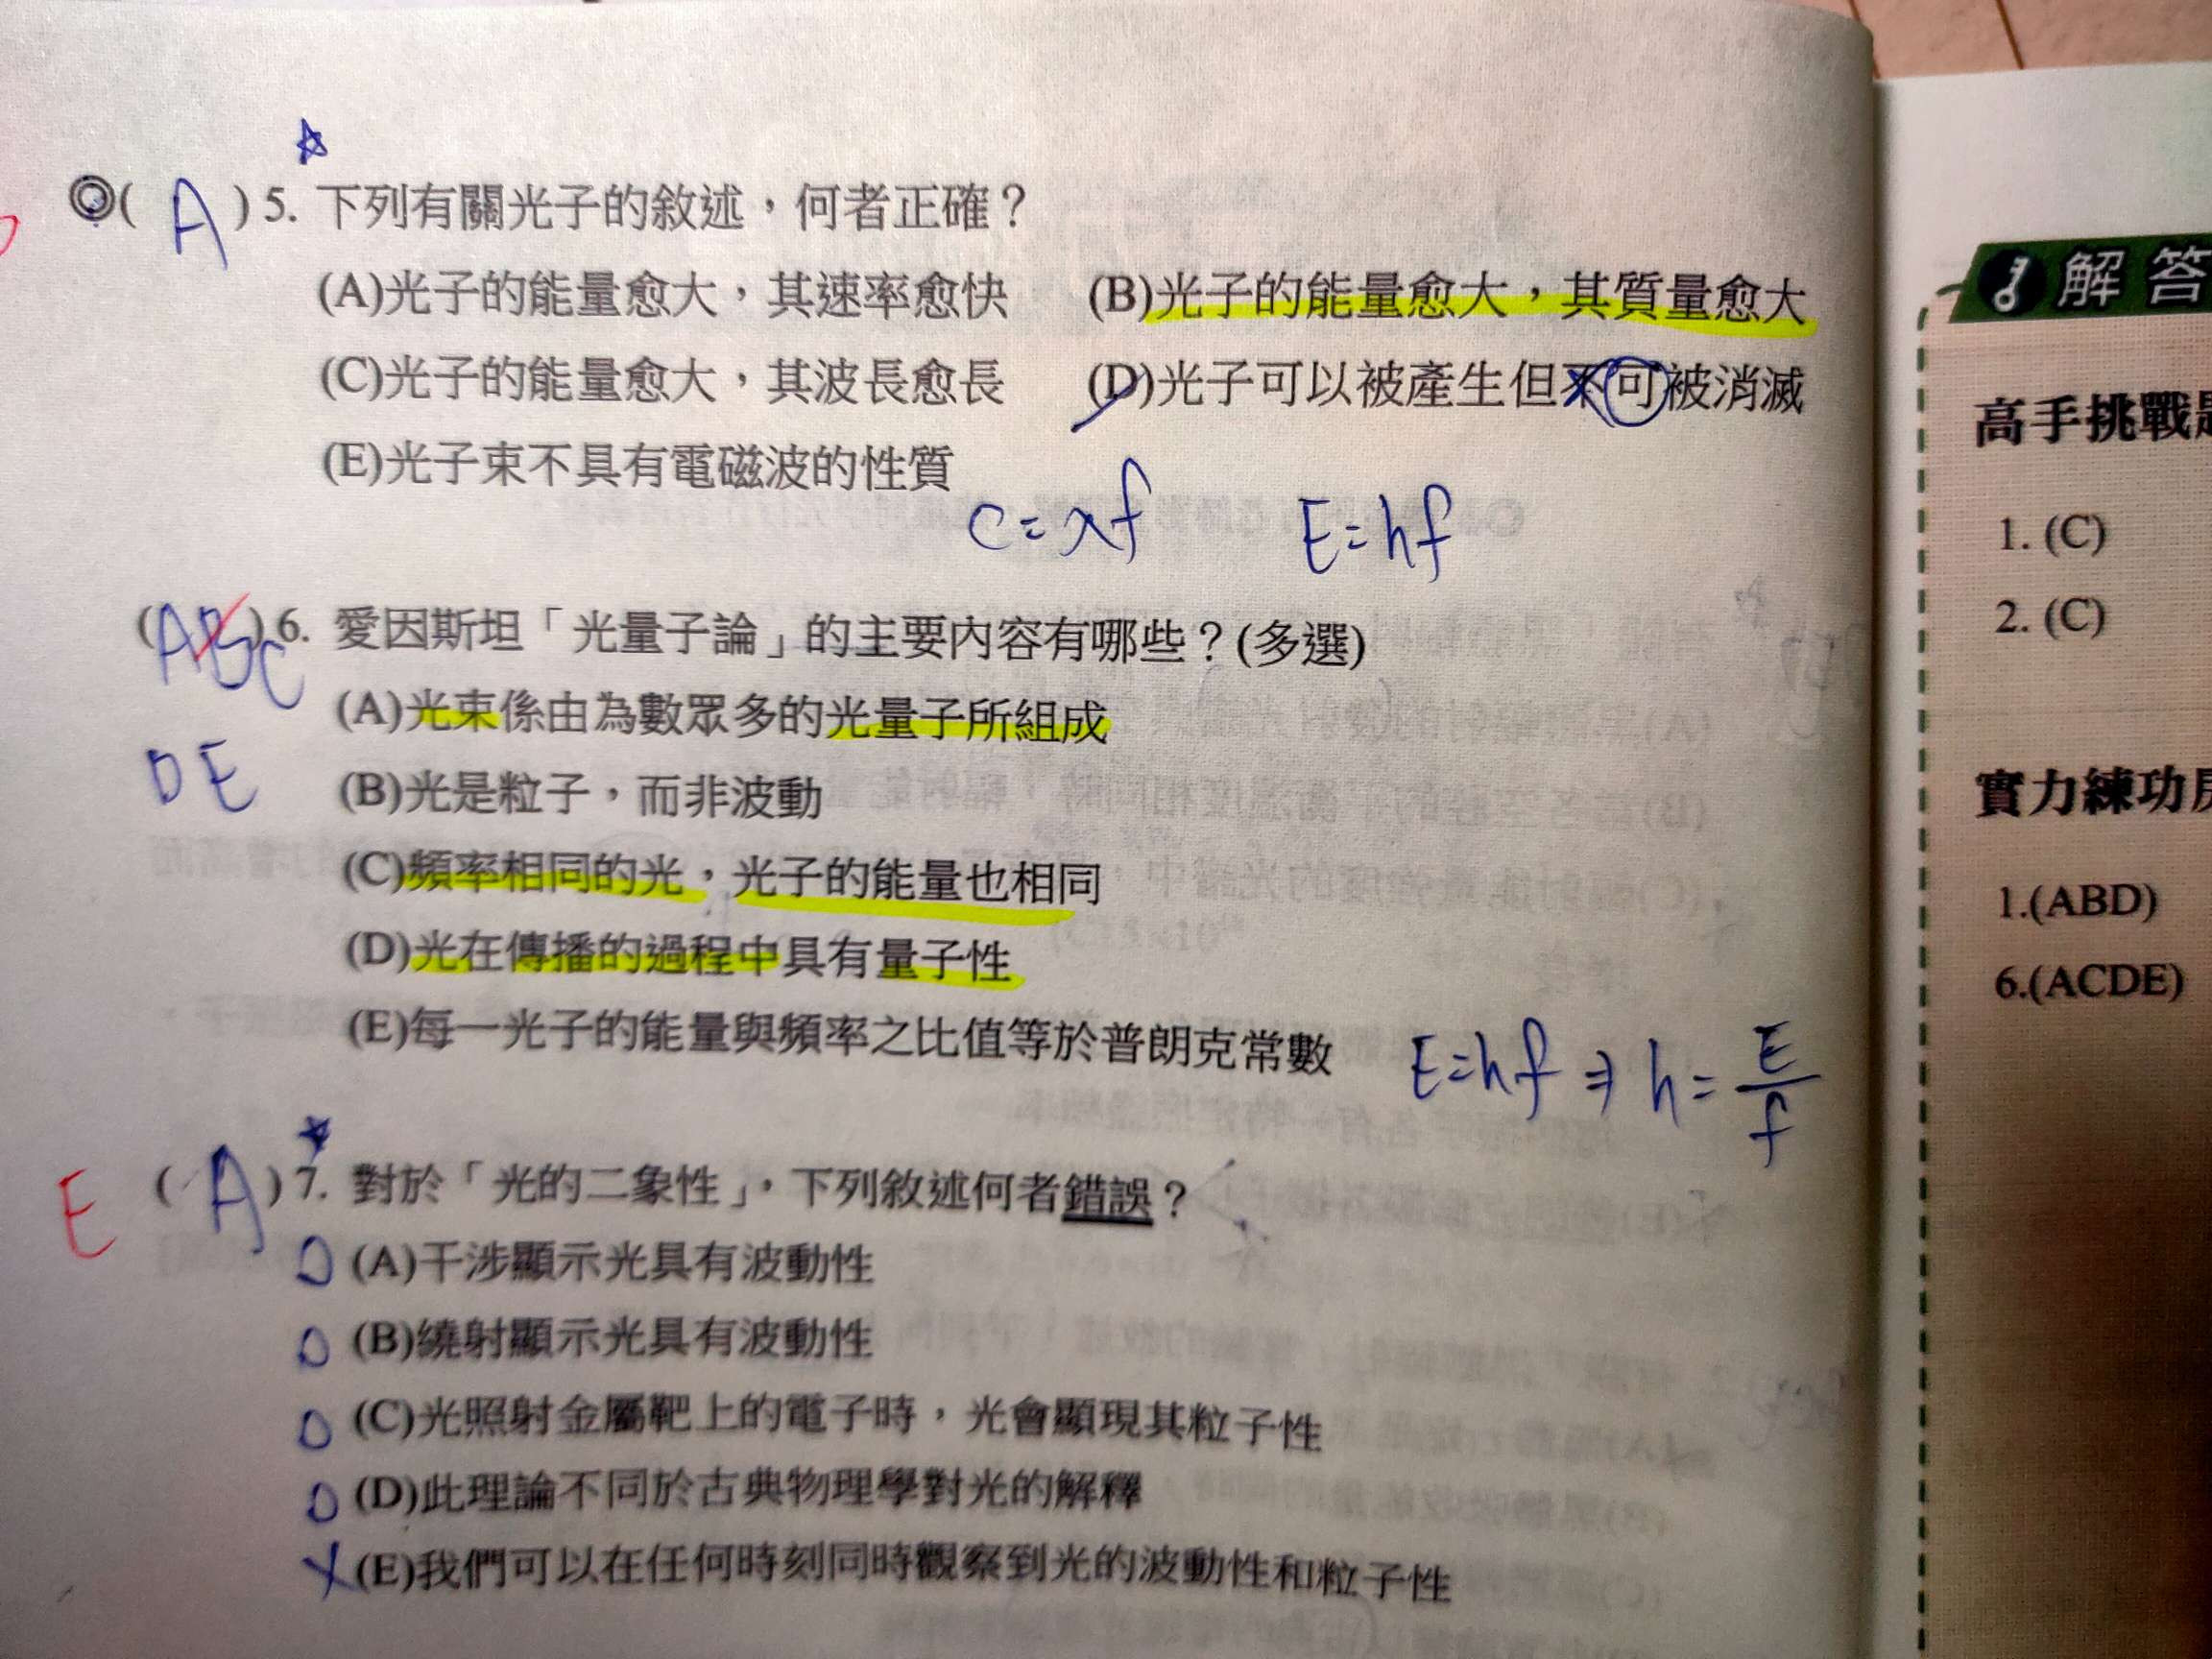 ◎( A ) 5. 下列有關光子的敘述，何者正確？
(A)光子的能量愈大，其速率愈快 (B)光子的能量愈大，其質量愈大
(C)光子的能量愈大，其波長愈長 (D)光子可以被產生但不可被消滅
(E)光子束不具有電磁波的性質
C=λf E=hf
(ABC) 6. 愛因斯坦「光量子論」的主要內容有哪些？(多選)
DE
(A)光束係由為數眾多的光量子所組成
(B)光是粒子，而非波動
(C)頻率相同的光，光子的能量也相同
(D)光在傳播的過程中具有量子性
(E)每一光子的能量與頻率之比值等於普朗克常數 E=hf ⇒ h=E/f
E ( A ) 7. 對於「光的二象性」，下列敘述何者錯誤？
O (A)干涉顯示光具有波動性
O (B)繞射顯示光具有波動性
O (C)光照射金屬靶上的電子時，光會顯現其粒子性
O (D)此理論不同於古典物理學對光的解釋
X (E)我們可以在任何時刻同時觀察到光的波動性和粒子性
解答
高手挑戰
1. (C)
2. (C)
實力練功
1.(ABD)
6.(ACDE)